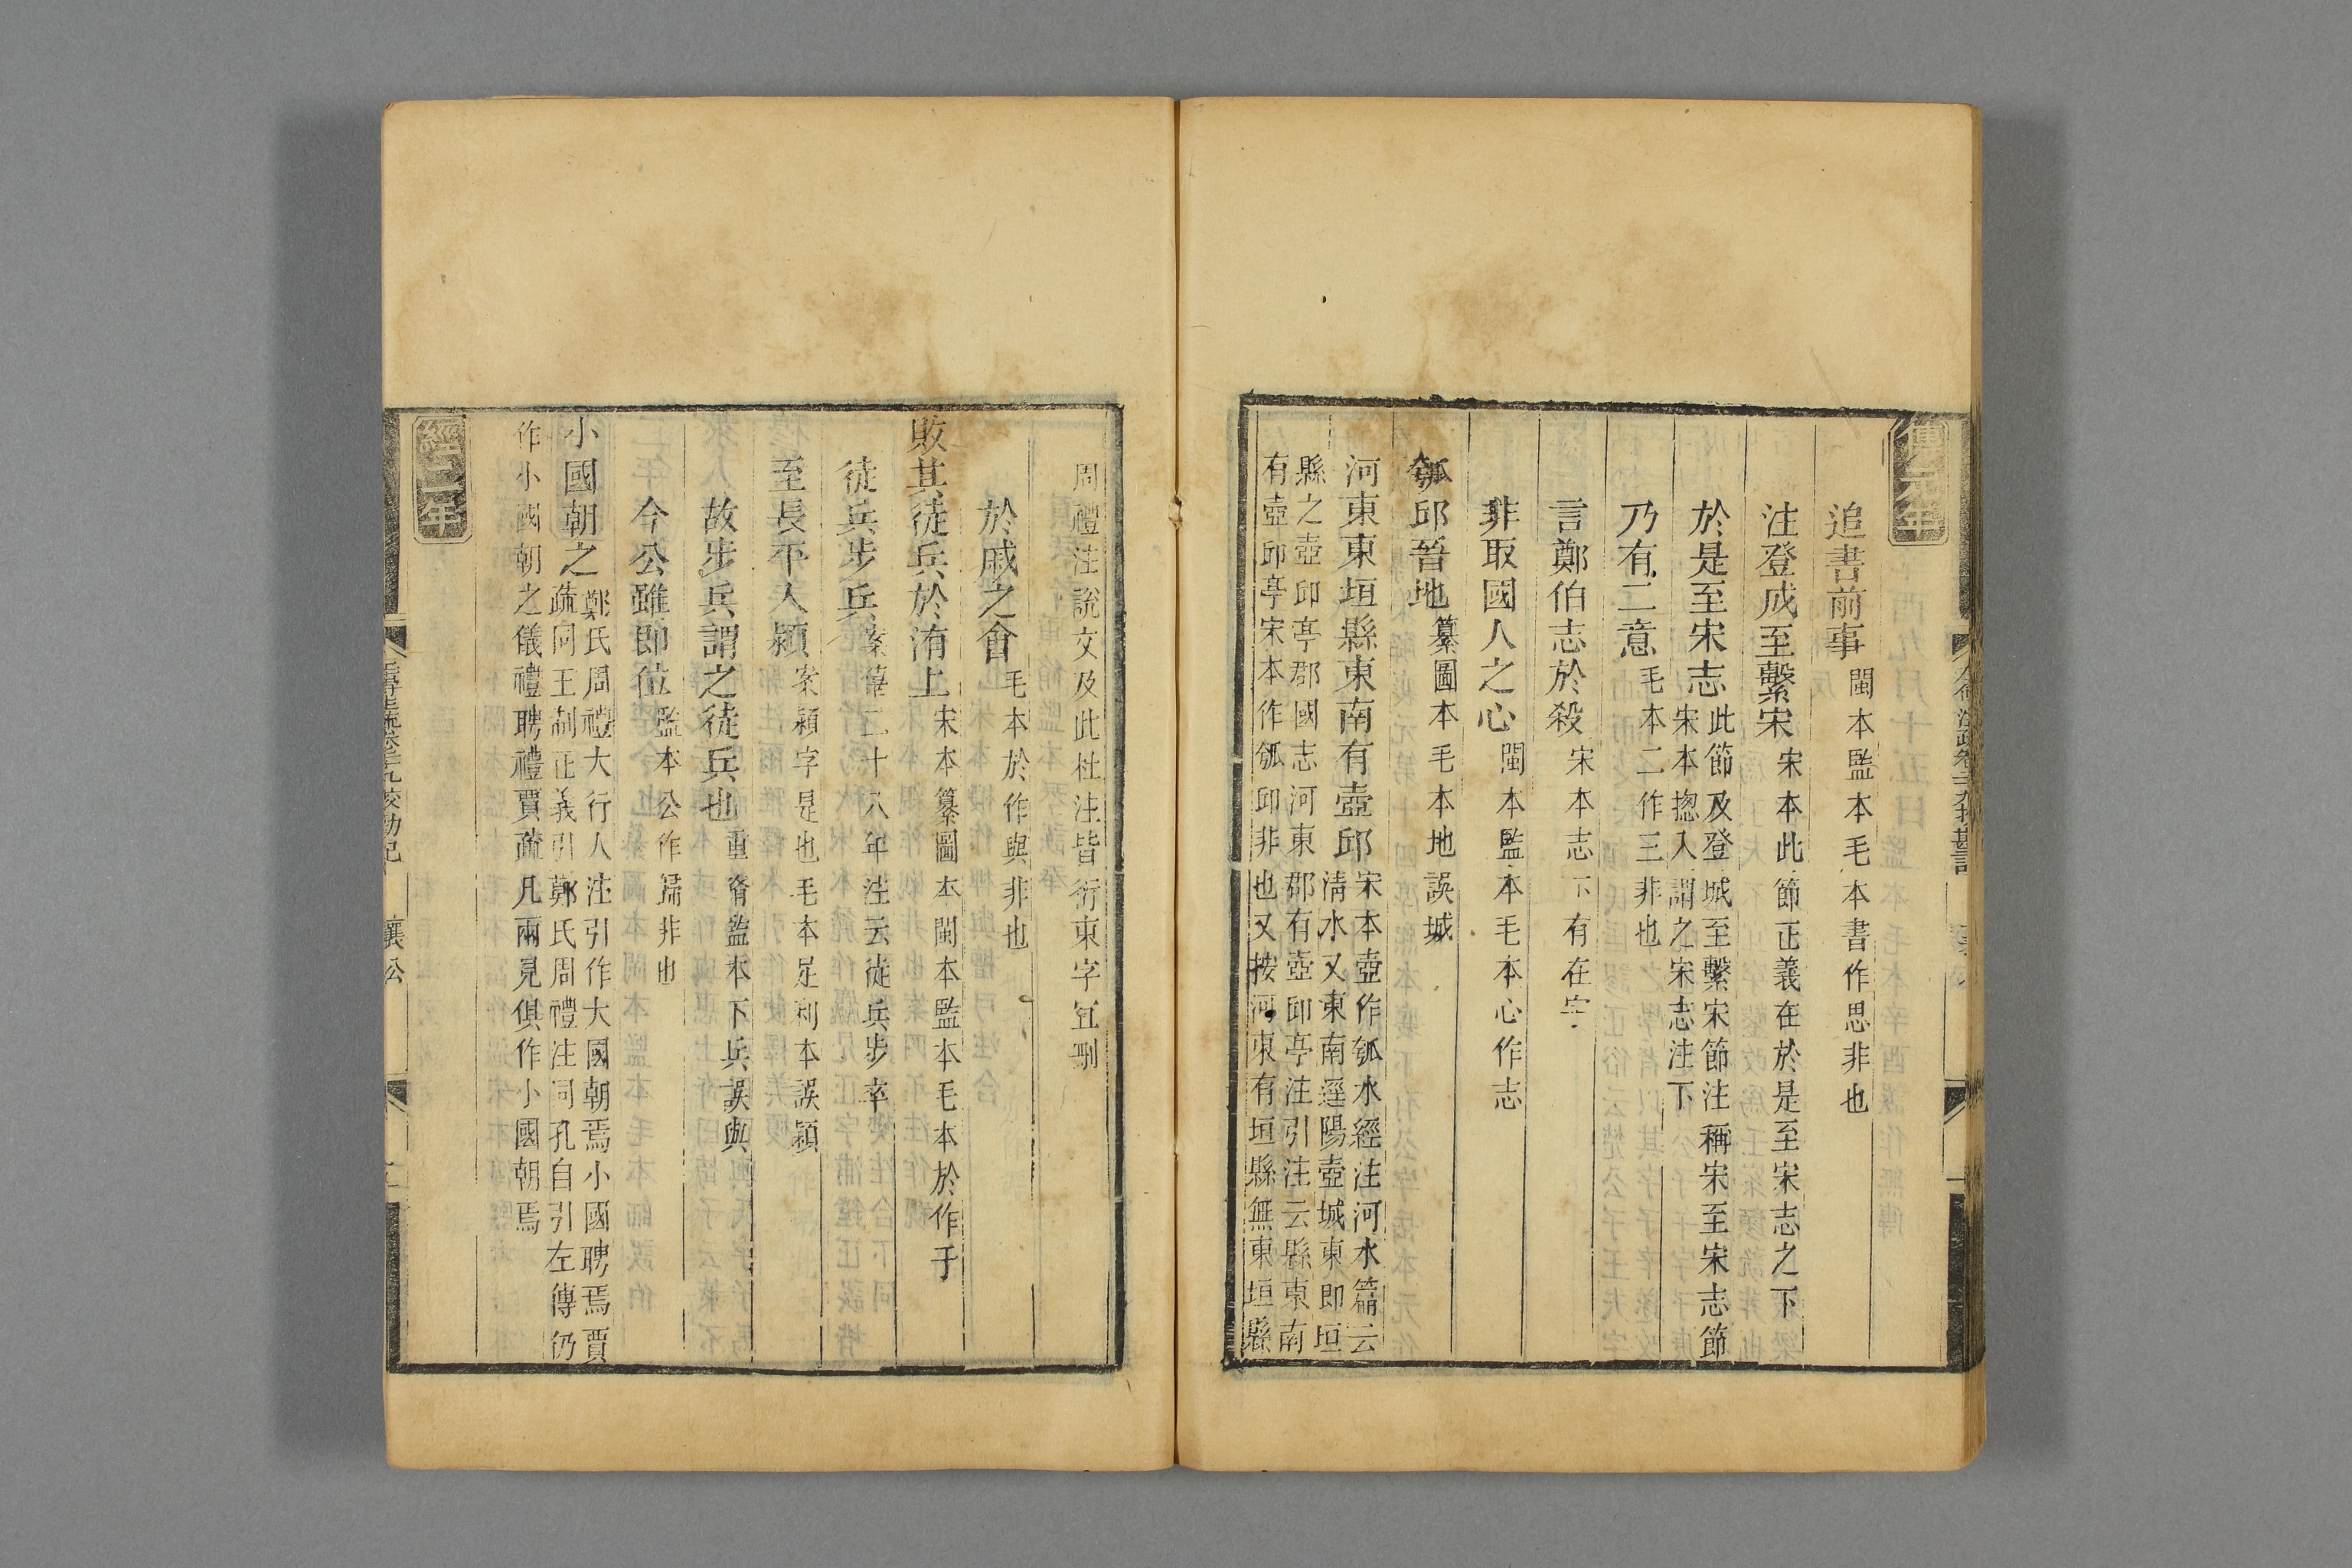 傳元年
追書前事閩本監本毛本書作思非也
注登成至繫宋宋本此節正義在於是至宋志之下
於是至宋志此節及登城至繫宋節注稱宋至宋志節
宋本揔入謂之宋志注下
乃有二意毛本二作三非也
言鄭伯志於殺宋本志下有在字
非取國人之心閩本監本毛本心作志
瓠邱晉地纂圖本毛本地誤城
河東東垣縣東南有壺邱宋本壺作瓠水經注河水篇云
清水又東南逕陽壺城東即垣
縣之壺邱亭郡國志河東郡有壺邱亭注引注云縣東南
有壺邱亭宋本作瓠邱非也又按河東有垣縣無東垣縣
周禮注說文及此杜注皆衍東字宜刪
於戚之會毛本於作與非也
敗其徒兵於洧上宋本纂圖本閩本監本毛本於作于
徒兵步兵案僖二十八年注云徒兵步卒
至長不入潁案潁字是也毛本足利本誤穎
故步兵謂之徒兵也重脩監本下兵誤與
今公雖即位監本公作歸非也
小國朝之鄭氏周禮大行人注引作大國朝焉小國聘焉賈
疏同王制正義引鄭氏周禮注同孔自引左傳仍
作小國朝之儀禮聘禮賈疏凡兩見俱作小國朝焉
經二年
襄公